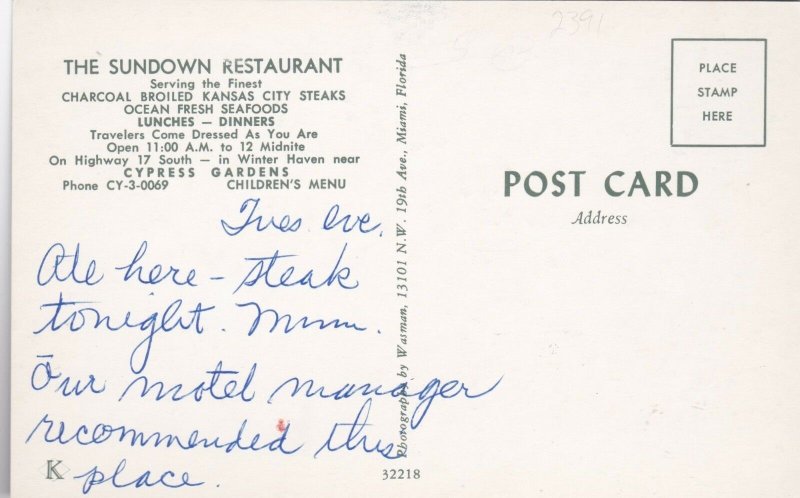 THE SUNDOWN RESTAURANT
Serving the Finest
CHARCOAL BROILED KANSAS CITY STEAKS
OCEAN FRESH SEAFOODS
LUNCHES — DINNERS
Travelers Come Dressed As You Are
Open 11:00 A.M. to 12 Midnite
On Highway 17 South — in Winter Haven near
CYPRESS GARDENS
Phone CY-3-0069 CHILDREN'S MENU
Tues. eve.
Ate here – steak
tonight. Mmm.
Our motel manager
recommended this
place.
K
Photography by Wasman, 13101 N.W. 19th Ave., Miami, Florida
32218
2391
PLACE
STAMP
HERE
POST CARD
Address